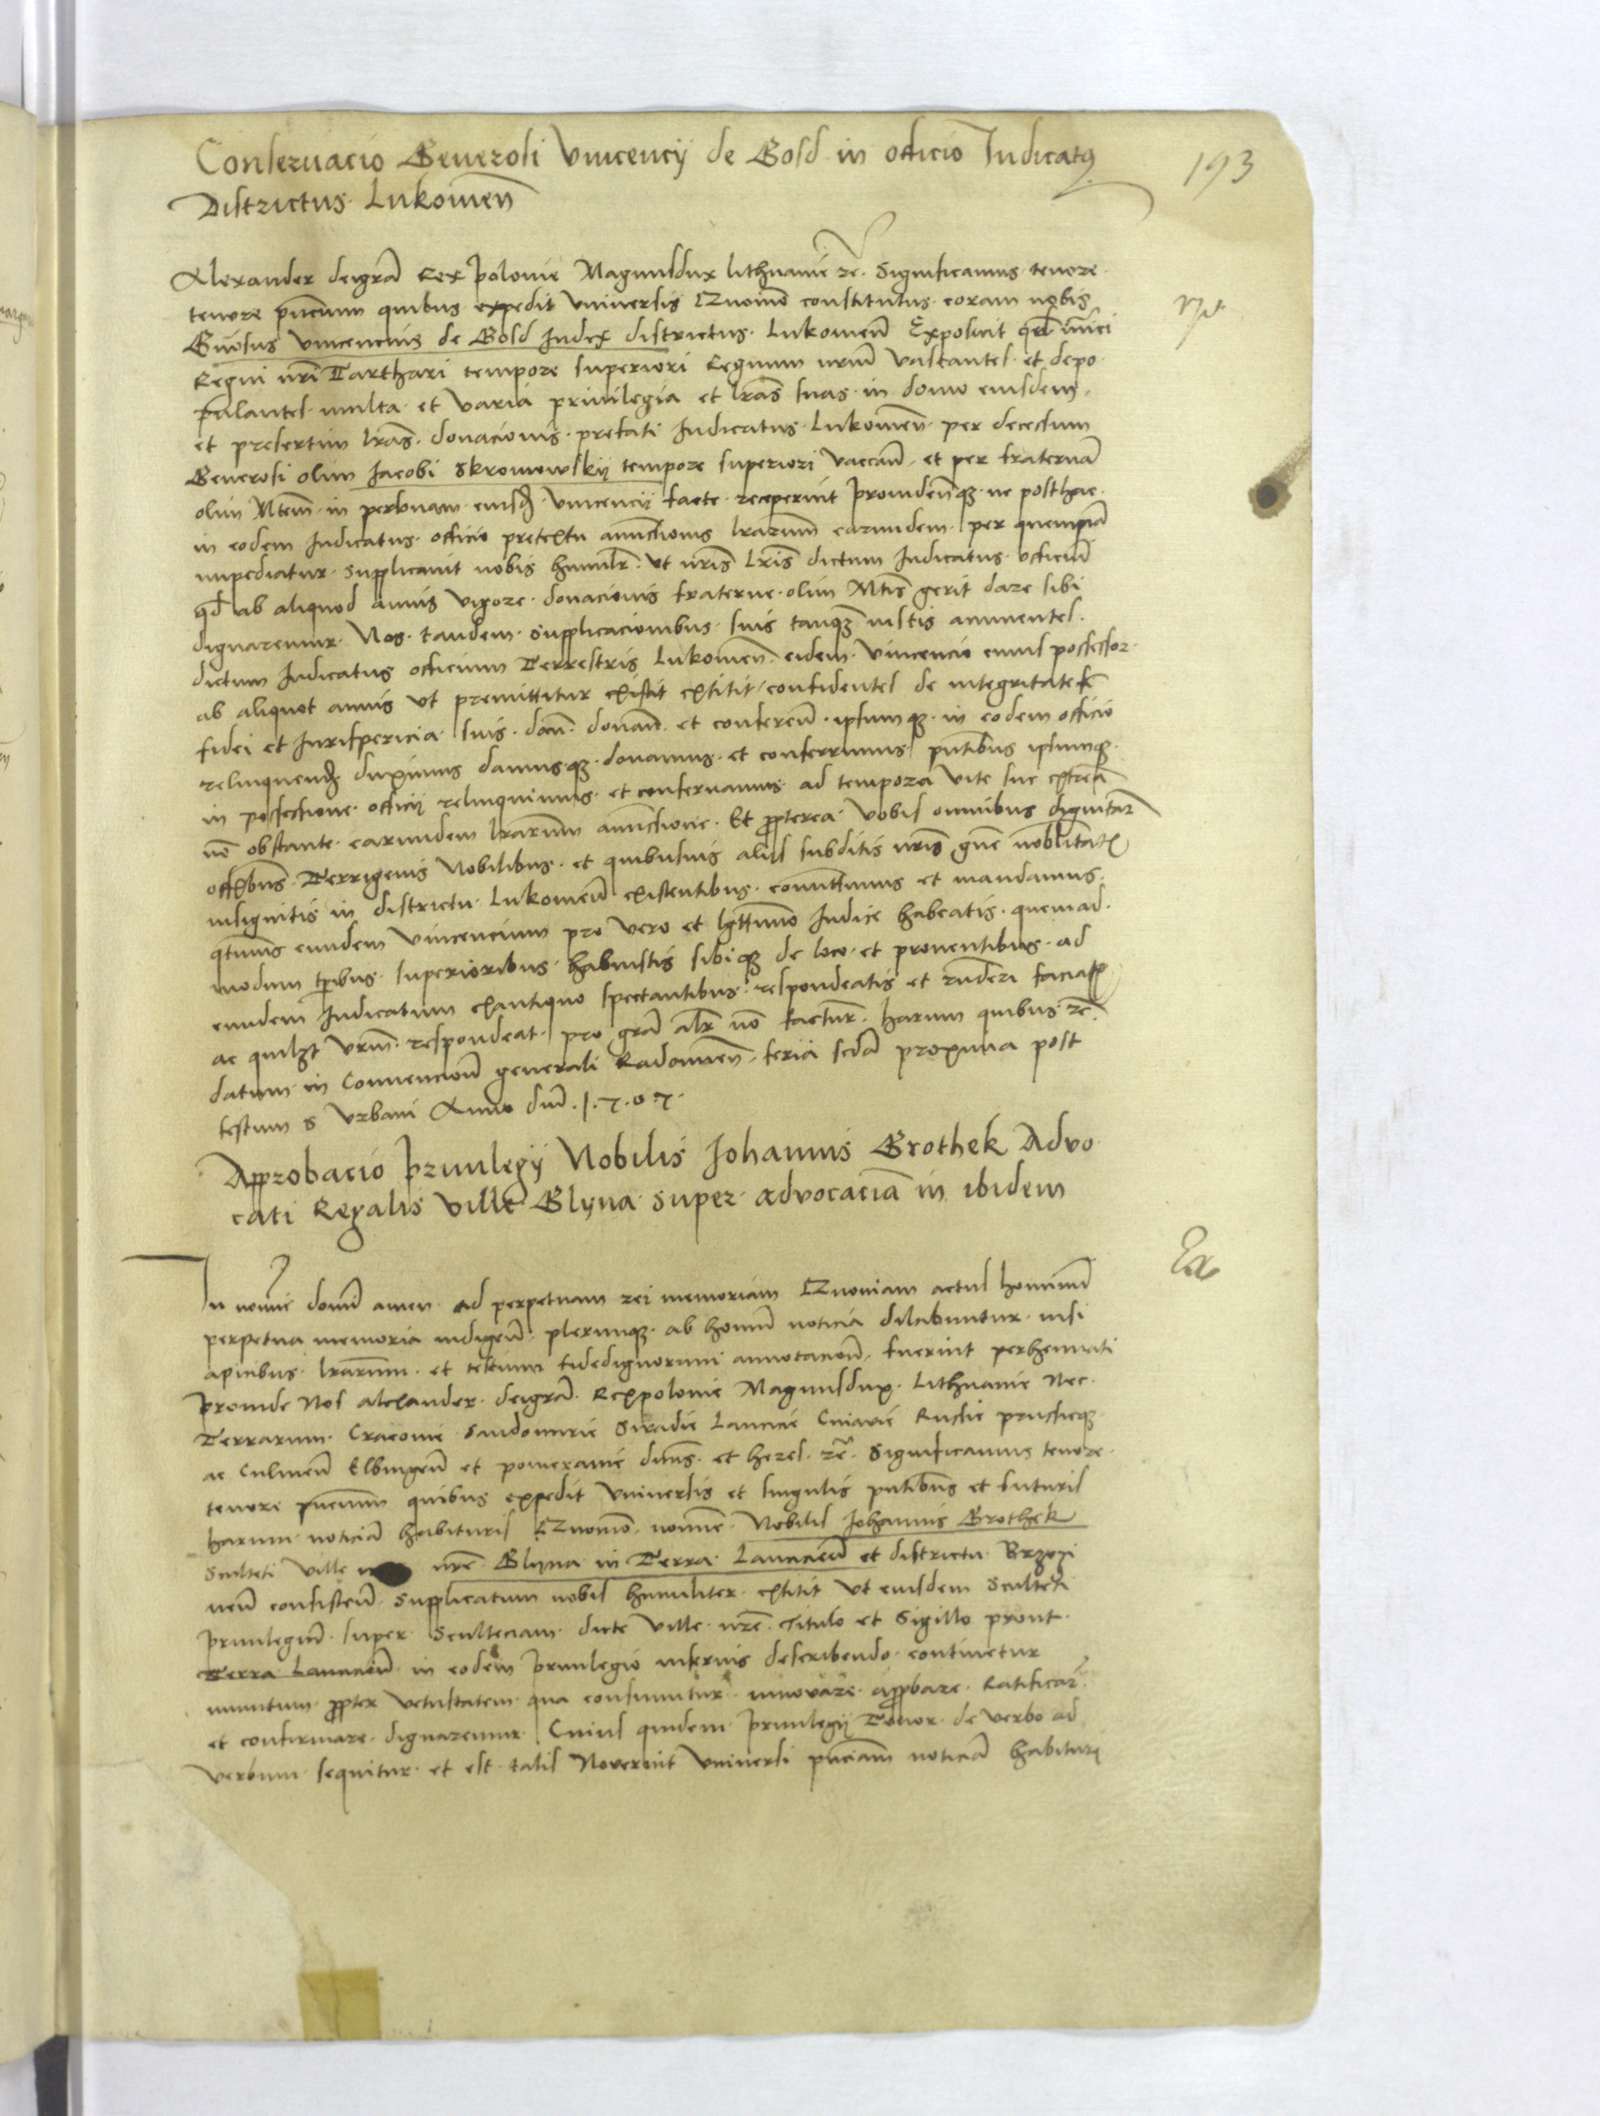 193
Conservacio Generosi Vincencij de Gosd in officio Iudicatus
Districtus Lukowien̄
Alexander deigrā Rex polonie Magnusdux lithuanie rē. Significamus tenore
tenore pn̄cium quibus expedit vniuersis Quomō constitutus coram nobis
Gn̄osus vincencius de Gosd Iudex districtus Lukowien̄ Exposuit qd̄ inīci
Regni nrī Tarthari tempore superiori Regnum nrūm vastantes et depo
pulantes multa et varia priuilegia et lrās suas in domo eiusdem
et presertim lrās donacionis prefati Iudicatus Lukowien̄ per decessum
Generosi olim Iacobi Skromowskij tempore superiori vacan̄ et per fraternā
olim Mtem̄ in personam eiusd vincencij facte receperint prouidensq; ne posthac
in eodem Iudicatus officio pretextu amissionis lrarum̄ earumdem per quempiā
impediatur supplicauit nobis humilr̄ vt nrīs lrīs dictum Iudicatus officiū
qd̄ ab aliquod annis vigore donacionis fraterne olim Mtis̄ gerit dare sibi
dignaremur Nos tandem supplicacionibus suis tanq̄ iustis annuentes
dictum Iudicatus officium Terrestris Lukowien̄ eidem vincencio cuius possessor
ab aliquot annis vt premittitur existit extitit confidentes de integritate
fidei et Iurisperícia suis dan̄ donan̄ et conferen̄ ipsumq; in eodem officio
relinquend duximus damusq; donamus et conferimus pn̄tibus ipsumq;
in possessione officij relinquimus et conseruamus ad tempora vite sue extrea
nō obstante earumdem lrarum̄ amissione Et propterea vobis omnibus dignitar̄
offibus̄ Terrigenis Nobilibus et quibusuis alijs subditis nrīs gn̄e nobilitatis
insignitis in districtu Lukowien̄ existentibus comittimus et mandamus
qtenus̄ eundem vincencium pro vero et lgttimo Iudice habeatis quemad
modum tp̄ribus superioribus habuistis sibiq; de loco et prouentibus ad
eundem Iudicatum exantiquo spectantibus respondeatis et rn̄deri faciatis
ac quilzt vrm̄ respondeat pro grā alr̄ nō factur̄ harum quibus rē
datum in Conuencionē generali Radomien̄ feria scdā proxima post
festum s Vrbani Anno dni 1505
Approbacio priuilegij Nobilis Iohannis Grothek Aduo
cati Regalis ville Glyna super aduocaciā in ibidem
Ex
In noīe domī amen ad perpetuam rei memoriam Quoniam actus hominū
perpetua memoria indigen̄ plerumq; ab homī noticia dilabuntur nisi
apicibus lrarum̄ et testium fidedignorum annotacionē fuerint perhennati
proinde Nos alexander deigrā Rexpolonie Magnusdux Lithuanie Nec
Terrarum Cracouie Sandomirie Siradie Lancicie Cuiauie Russie prussieq;
ac Culmen̄ Elbingen̄ et pomeranie dns̄ et heres rē Significamus tenore
tenore pn̄cium quibus expedit vniuersis et singulis pn̄tibus et futuris
harum noticiā habituris Quomō noīe Nobilis Iohannis Grothek
Sculteti ville nrē Glyna in Terra Lancicien̄ et districtu Brzezi
nen̄ consisten̄ supplicatum nobis humiliter extitit vt eiusdem Sculteti
priuilegiū super Sculteciam dicte ville nrē Titulo et Sigillo prout
Terra Lancicien̄ in eodem priuilegio inferius describendo continetur
munitum propter vetustatem qua consumitur innouare approbare Ratificar̄
et confirmare dignaremur Cuius quidem priuilegij Tenor de verbo ad
verbum sequitur et est talis Nouerint vniuersi pn̄ciam noticiā habituri